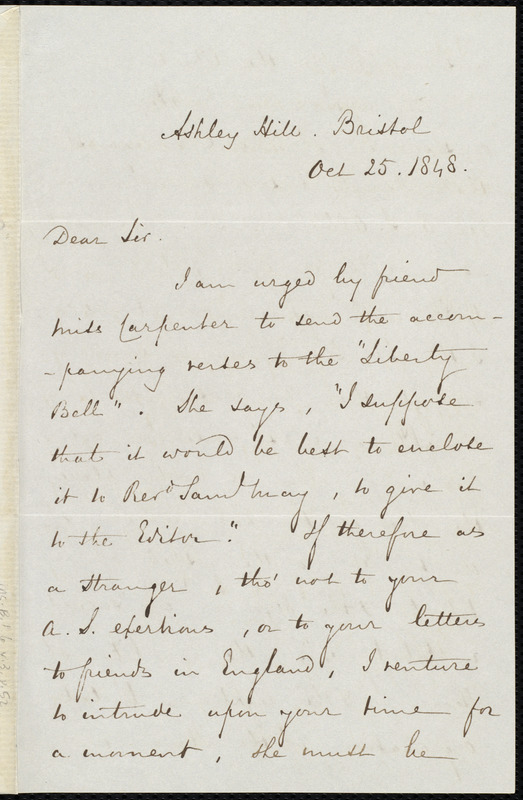 Ashley Hill. Bristol
Oct 25. 1848.
Dear Sir.
I am urged by friend
Miss Carpenter to send the accom-
-panying verses to the "Liberty
Bell". She says, "I suppose
that it would be best to enclose
it to Revd Saml May, to give it
to the Editor." If therefore as
a stranger, tho' not to your
A. S. exertions, or to your letters
to friends in England, I venture
to intrude upon your time for
a moment, she must be